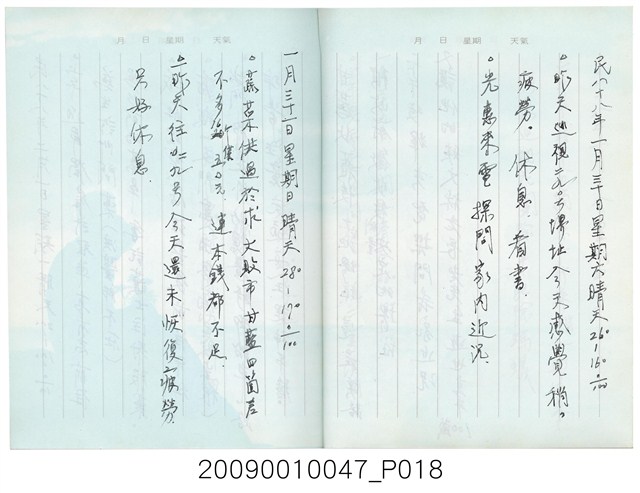 月 日 星期 天氣
民八十八年一月三十日星期六晴天 26°-16° 0/100
。昨天巡視二九〇号壩址今天感覺稍。
疲勞。休息.看書.
。光惠來電 探問家內近況.
月 日 星期 天氣
一月三十一日星期日晴天 28°-17° 0/100
。蔬菜供過於求大股市甘藍四箇若
不多 所價 五〇元.連本錢都不足.
。昨天往 二九〇号今天還未恢復疲勞.
只好休息.
20090010047_P018